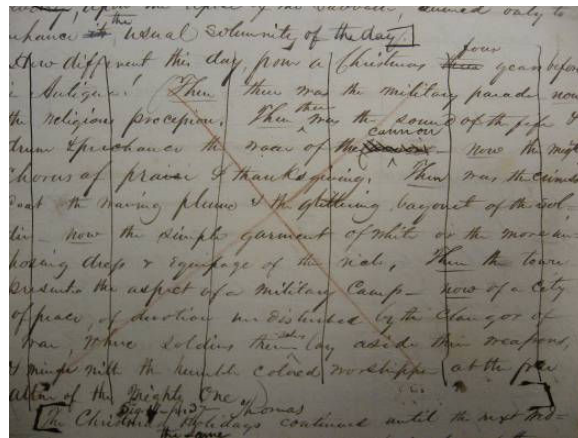 upon the
enhance it the usual solemnity of the day.
How different this day, from a Christmas three four years before
in Antigua! Then there was the military parade now
the religious procession. Then there was the sound of the fife &
drum & perchance the roar of the cannon – now the mighty
chorus of praise & thanksgiving. Then was the crimson
coat the waving plume & the glittering bayonet of the sol-
dier – now the simple garment of white or the more im-
posing dress & equipage of the rich. Then the town
presents the aspect of a military camp – now of a city
of peace, of devotion undisturbed by the clangor of
war where soldiers themselves lay aside their weapons,
& mingle with the humble colored worshipper at the free
altar of the Mighty One
The Christmas Holidays continued until the next Wed-
the same